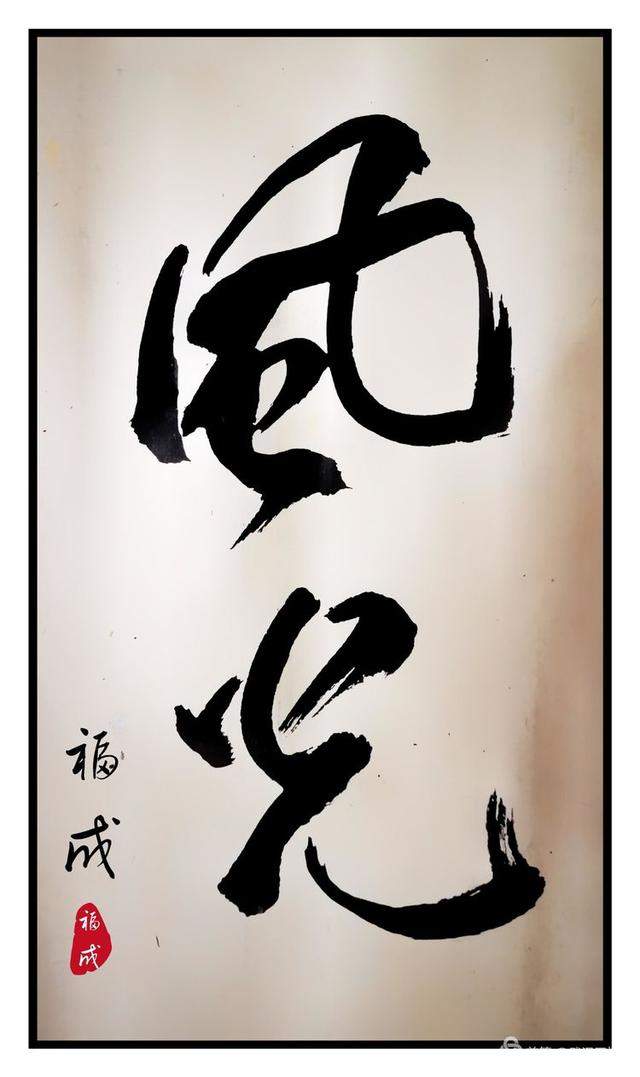 风光
福成
福成